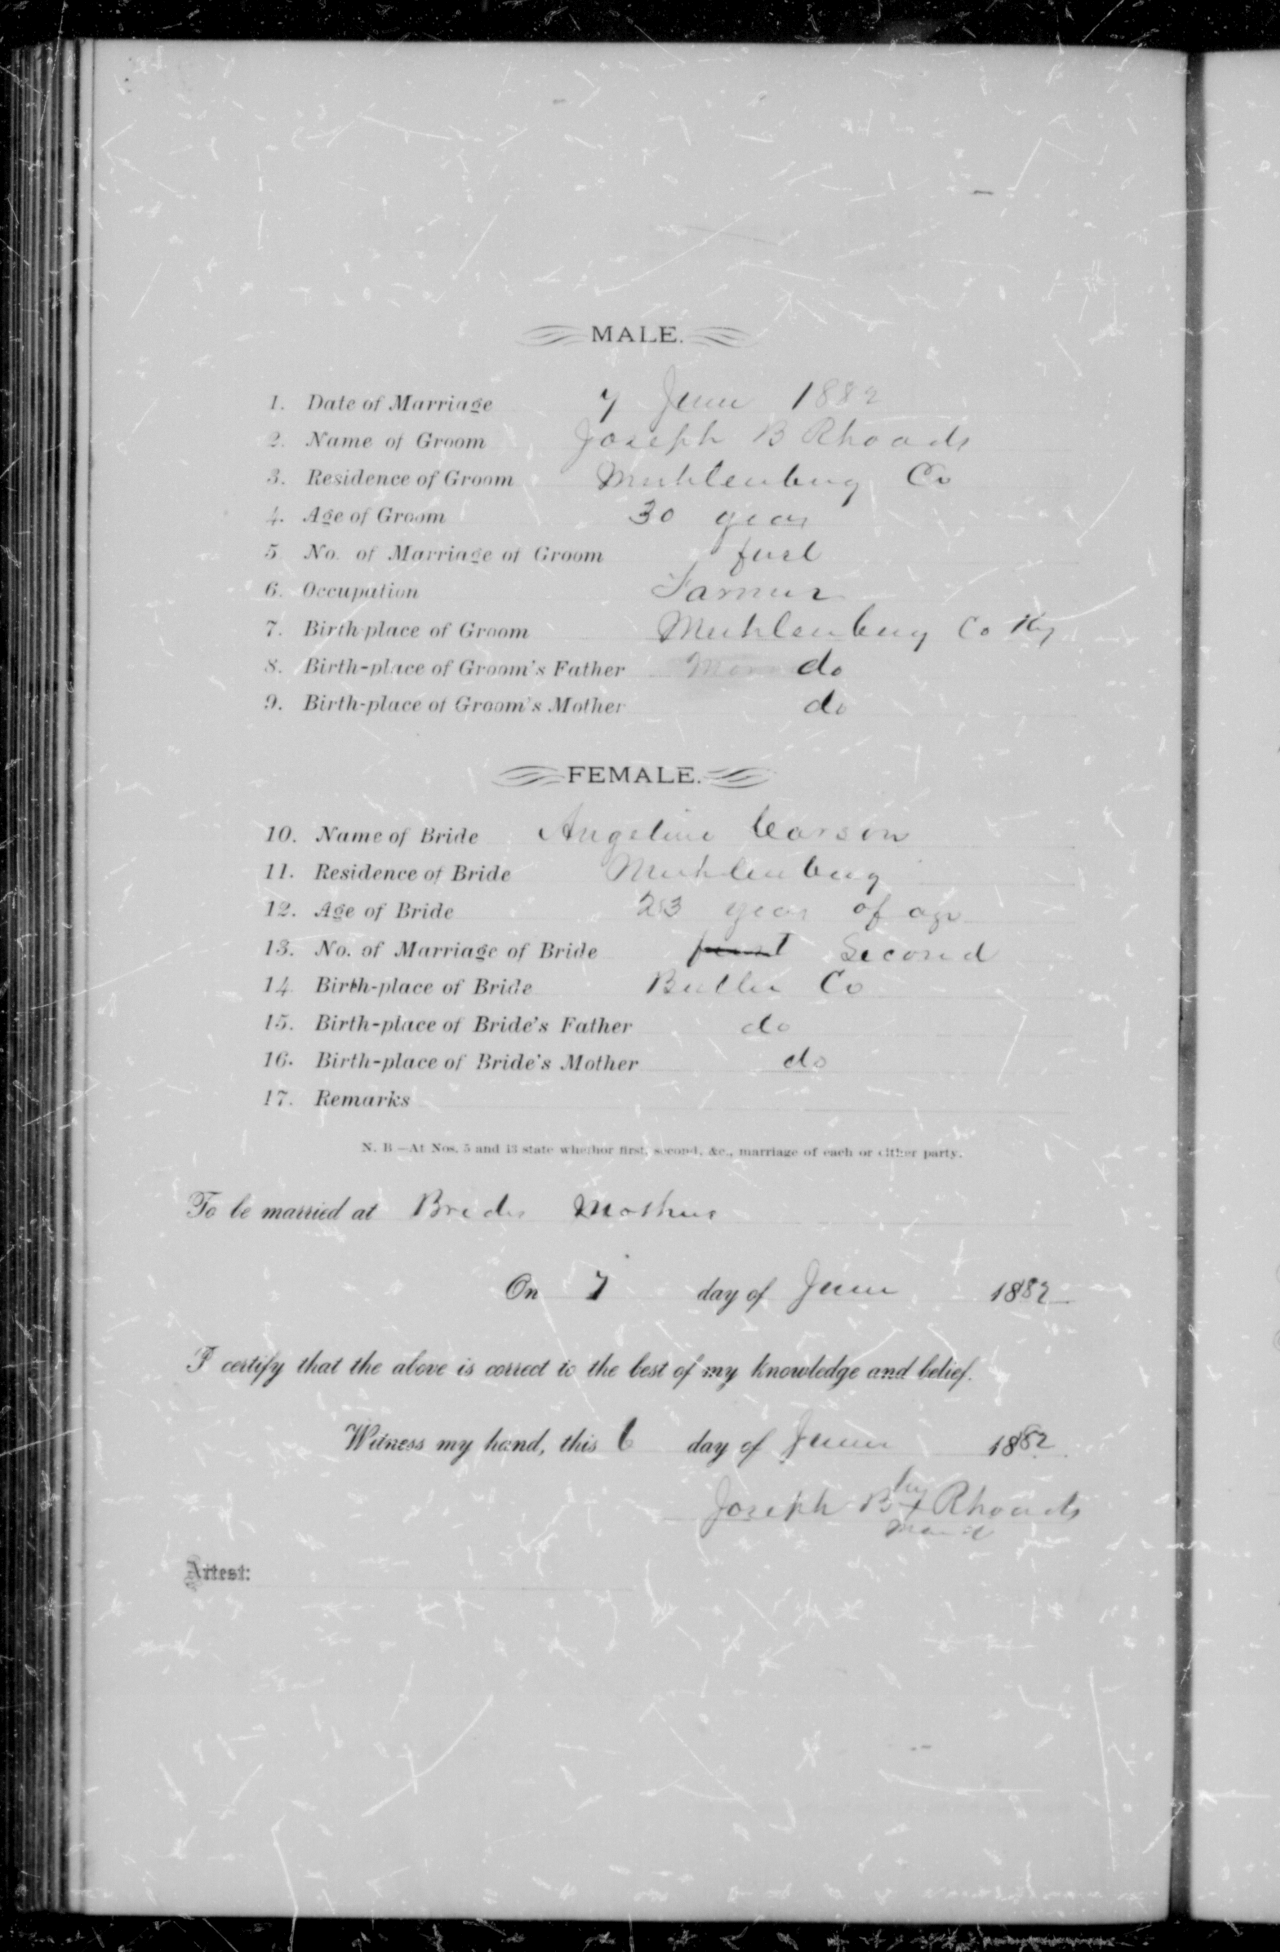 MALE.
1. Date of Marriage 7 June 1882
2. Name of Groom Joseph B Rhoads
3. Residence of Groom Muhlenburg Co
4. Age of Groom 30 years
5 No. of Marriage of Groom first
6. Occupation Farmer
7. Birth-place of Groom Muhlenburg Co Ky
8. Birth-place of Groom's Father do
9. Birth-place of Groom's Mother do
FEMALE.
10. Name of Bride Angeline Carson
11. Residence of Bride Muhlenburg
12. Age of Bride 23 years of age
13. No. of Marriage of Bride first Second
14 Birth-place of Bride Butler Co
15. Birth-place of Bride's Father do
16. Birth-place of Bride's Mother do
17. Remarks
N. B—At Nos. 5 and 13 state whether first, second, &c., marriage of each or either party.
To be married at Brides Mothers
On 7 day of June 1882
I certify that the above is correct to the best of my knowledge and belief.
Witness my hand, this 6 day of June 1882
his
Joseph B x Rhoads
mark
Attest: